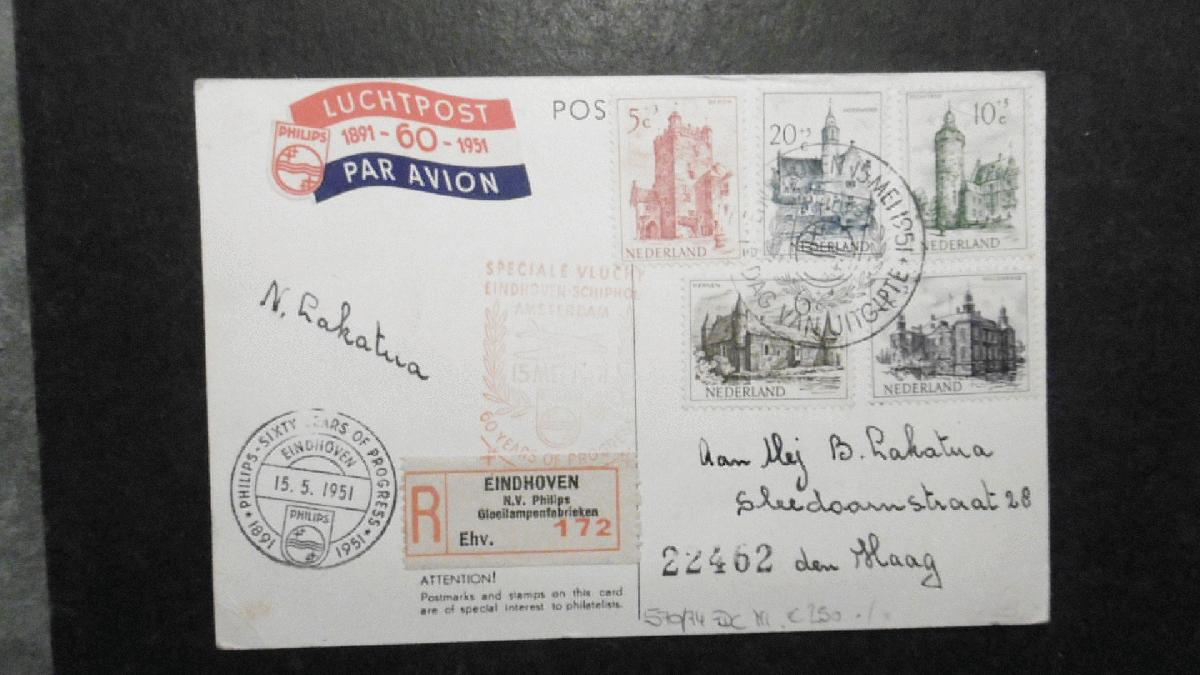 LUCHTPOST
PHILIPS 1891 - 60 - 1951
PAR AVION
POS
5c +3
NEDERLAND
20 +5 c
NEDERLAND
10 +5 c
NEDERLAND
15 MEI 1951
DAG VAN UITGIFTE
NEDERLAND
NEDERLAND
SPECIALE VLUCH
EINDHOVEN-SCHIPHO
AMSTERDAM
15 MEI
60 YEARS OF PRO
N. Lakatua
PHILIPS - SIXTY YEARS OF PROGRESS
EINDHOVEN
15. 5. 1951
PHILIPS
1891 1951
R
EINDHOVEN
N.V. Philips
Gloeilampenfabrieken
172
Ehv.
Aan Mej B. Lakatua
Sleedoornstraat 28
22462 den Haag
ATTENTION!
Postmarks and stamps on this card
are of special interest to philatelists.